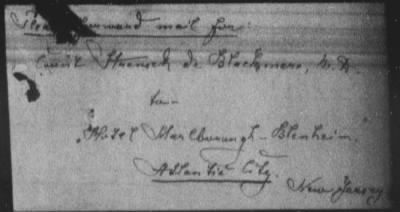 Please forward mail for:
Count Strensch de Blackmere, M.D.
to-
"Hotel Marlborough-Blenheim."
Atlantic City.
New Jersey